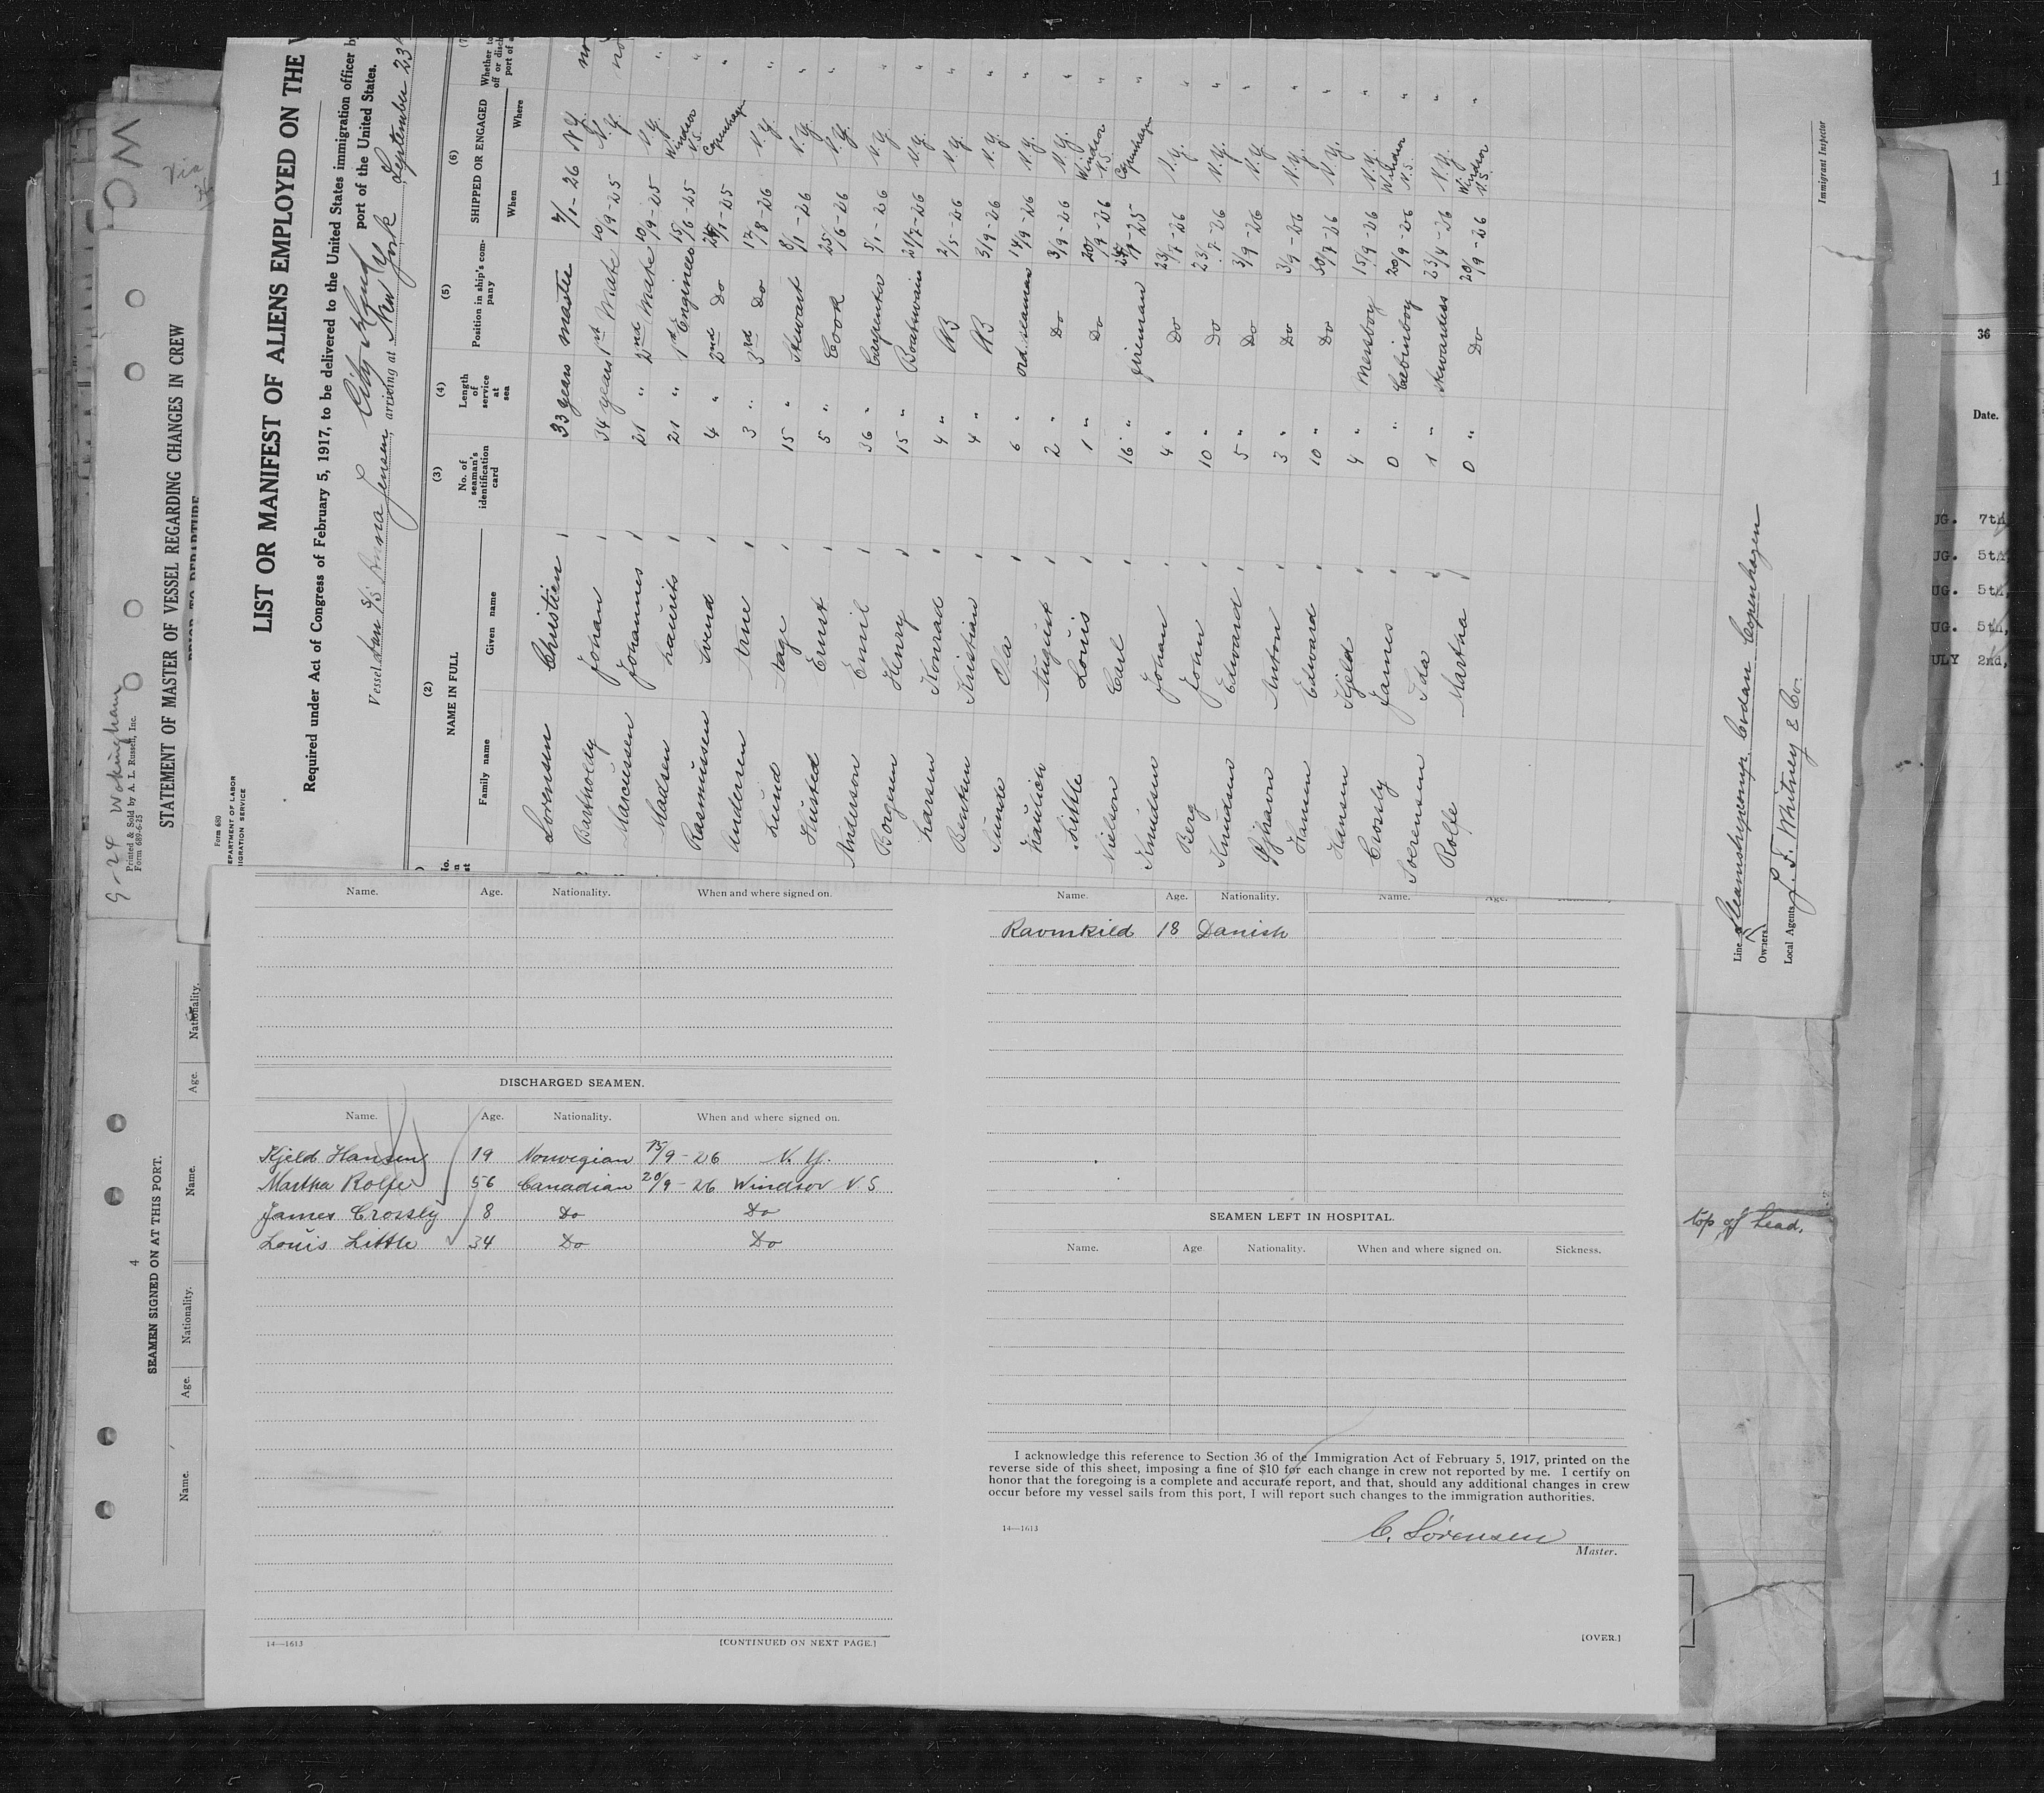 LIST OR MANIFEST OF ALIENS EMPLOYED ON THE
Required under Act of Congress of February 5, 1917, to be delivered to the United States immigration officer by
port of the United States.
Vessel Dan S/S Anna Jensen, arriving at New York, September 23
City Island
Form 680
EPARTMENT OF LABOR
IGRATION SERVICE
(2) (3) (4) (5) (6)
NAME IN FULL
Family name Given name
No. of seaman's identification card
Length of service at sea
Position in ship's company
SHIPPED OR ENGAGED
When Where
Lorensen Christien 33 years master 7/1-26 N.Y. no
Bartholdy Johan 34 years 1st Mate 10/9-25 N.Y. no
Marcussen Johannes 21 " 2nd Mate 10/9-25 N.Y. "
Madsen Laurits 21 " 1st Engineer 15/6-25 Windsor N.S. "
Rasmussen Svend 4 " 2nd Do Copenhagen "
Andersen Arne 3 " 3rd Do 17/8-26 N.Y. "
Lund Aage 15 " Stuwart 8/1-26 N.Y. "
Husted Ernst 5 " Cook 25/6-26 N.Y. "
Anderson Emil 36 " Carpenter 5/1-26 N.Y. "
Borgesen Henry 15 " Boatswain 21/7-26 N.Y. "
Larsen Konrad 4 " AB 2/5-26 N.Y. "
Bentsen Kristian 4 " AB 3/9-26 N.Y. "
Sunde Ola 6 " Ord. seaman 14/9-26 N.Y. "
August 2 " Do 3/9-26 N.Y. "
Little Louis 1 " Do 20/9-26 Windsor N.S. "
Nielson Carl 16 " fireman Copenhagen "
Knudsen Johan 4 " Do 23/7-26 N.Y. "
Berg John 10 " Do 23/7-26 N.Y. "
Knudsen Edward 5 " Do 3/9-26 N.Y. "
Anton 3 " Do 3/9-26 N.Y. "
Hansen Edward 10 " Do 30/7-26 N.Y. "
Hansen Kjeld 4 " Messboy 15/9-26 N.Y. "
Crosly James 0 " Cabinboy 20/9-26 Windsor N.S. "
Soerensen Ida 1 " Stuardess 23/4-26 N.Y. "
Rolfe Martha 0 " Do 20/9-26 Windsor N.S. "
Line Steamshipcomp. Codan Copenhagen
Owners
Local Agents J. F. Whitney & Co.
Immigrant Inspector
9-24 Wokingham
Printed & Sold by A. L. Russell, Inc.
Form 689-6-25
STATEMENT OF MASTER OF VESSEL REGARDING CHANGES IN CREW
PRIOR TO DEPARTURE
4
SEAMEN SIGNED ON AT THIS PORT.
Name. Age. Nationality. Name. Age. Nationality.
36
Date.
UG. 7th,
UG. 5th,
UG. 5th,
UG. 5th,
ULY 2nd,
top of head.
Name. Age. Nationality. When and where signed on.
DISCHARGED SEAMEN.
Name. Age. Nationality. When and where signed on.
Kjeld Hansen 19 Norwegian 15/9-26 N.Y.
Martha Rolfe 56 Canadian 20/9-26 Windsor N.S
James Crossly 8 Do Do
Louis Little 34 Do Do
14—1613
[CONTINUED ON NEXT PAGE.]
Name. Age. Nationality. Name. Age.
Ravnkild 18 Danish
SEAMEN LEFT IN HOSPITAL.
Name. Age Nationality. When and where signed on. Sickness.
I acknowledge this reference to Section 36 of the Immigration Act of February 5, 1917, printed on the
reverse side of this sheet, imposing a fine of $10 for each change in crew not reported by me. I certify on
honor that the foregoing is a complete and accurate report, and that, should any additional changes in crew
occur before my vessel sails from this port, I will report such changes to the immigration authorities.
14—1613
C. Sörensen
Master.
[OVER.]